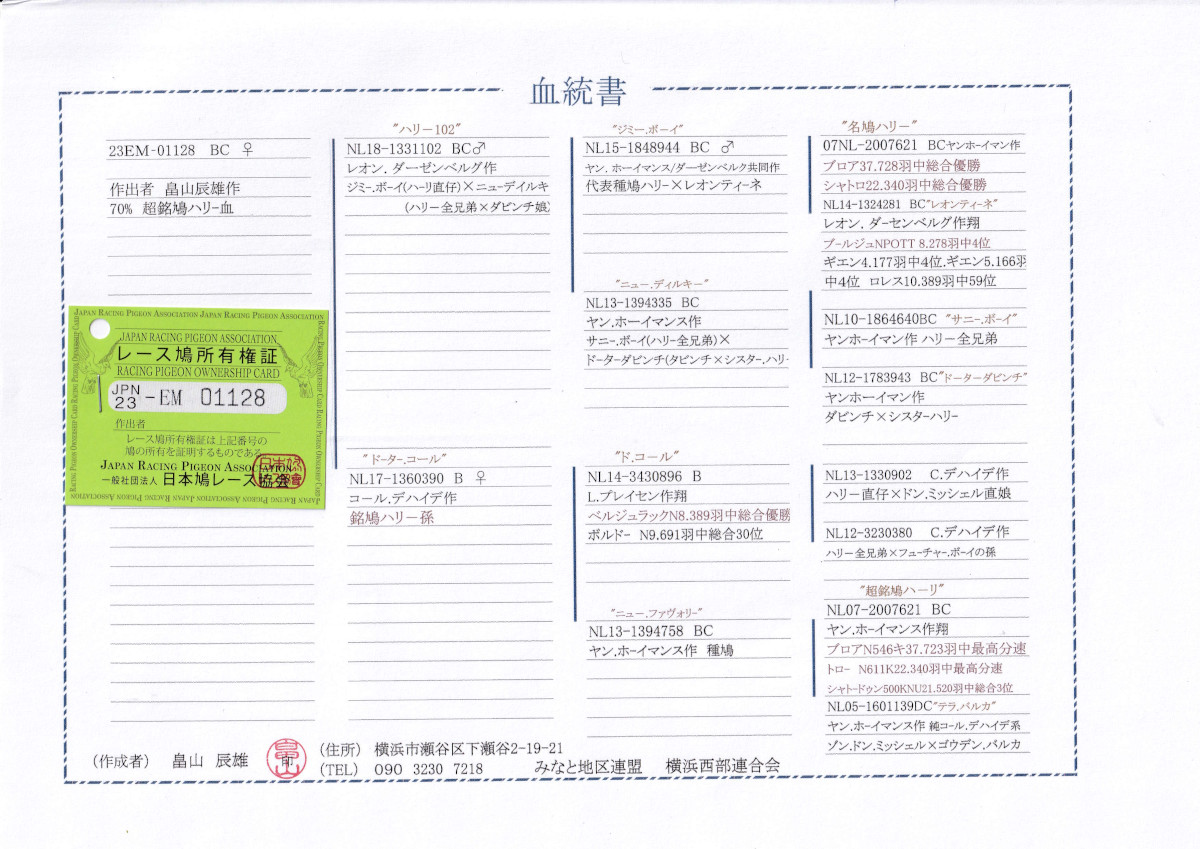 血統書
23EM-01128 BC ♀
作出者 畠山辰雄作
70% 超銘鳩ハリー血
JAPAN RACING PIGEON ASSOCIATION JAPAN RACING PIGEON ASSOCIATION
JAPAN RACING PIGEON ASSOCIATION
レース鳩所有権証
RACING PIGEON OWNERSHIP CARD
JPN
23 -EM 01128
作出者
レース鳩所有権証は上記番号の
鳩の所有を証明するものである
JAPAN RACING PIGEON ASSOCIATION
一般社団法人 日本鳩レース協会
"ハリー102"
NL18-1331102 BC♂
レオン. ダーゼンベルグ作
ジミー.ボーイ(ハーリ直仔)×ニューデイルキ
(ハリー全兄弟×ダビンチ娘)
"ドーター.コール"
NL17-1360390 B ♀
コール.デハイデ作
銘鳩ハリー孫
"ジミー.ボーイ"
NL15-1848944 BC ♂
ヤン. ホーイマンス/ダーゼンベルク共同作
代表種鳩ハリー×レオンティーネ
"ニュー.ディルキー"
NL13-1394335 BC
ヤン.ホーイマンス作
サニー.ボーイ(ハリー全兄弟)×
ドーターダビンチ(タビンチ×シスター.ハリ-
"ド.コール"
NL14-3430896 B
L.プレイセン作翔
ベルジュラックN8.389羽中総合優勝
ボルドー N9.691羽中総合30位
"ニュー.ファヴォリー"
NL13-1394758 BC
ヤン.ホーイマンス作 種鳩
"名鳩ハリー"
07NL-2007621 BCヤンホーイマン作
ブロア37.728羽中総合優勝
シャトロ22.340羽中総合優勝
NL14-1324281 BC"レオンティーネ"
レオン. ダーセンベルグ作翔
ブールジュNPOTT 8.278羽中4位
ギエン4.177羽中4位.ギエン5.166羽
中4位 ロレス10.389羽中59位
NL10-1864640BC "サニー.ボーイ"
ヤンホーイマン作 ハリー全兄弟
NL12-1783943 BC"ドーターダビンチ"
ヤンホーイマン作
ダビンチ×シスターハリー
NL13-1330902 C.デハイデ作
ハリー直仔×ドン.ミッシェル直娘
NL12-3230380 C.デハイデ作
ハリー全兄弟×フューチャー.ボーイの孫
"超銘鳩ハーリ"
NL07-2007621 BC
ヤン.ホーイマンス作翔
ブロアN546キ37.723羽中最高分速
トロー N611K22.340羽中最高分速
シャトードゥン500KNU21.520羽中総合3位
NL05-1601139DC"テラ.バルカ"
ヤン.ホーイマンス作 純コール.デハイデ系
ゾン.ドン.ミッシェル×ゴウデン.バルカ
(作成者) 畠山 辰雄 印
(住所) 横浜市瀬谷区下瀬谷2-19-21
(TEL) 090 3230 7218 みなと地区連盟 横浜西部連合会